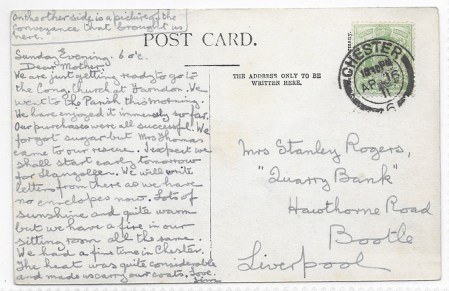 On the other side is a picture of the
conveyance that brought us
here.
POST CARD.
THE ADDRESS ONLY TO BE
WRITTEN HERE.
CHESTER
AP 16
6
Sunday Evening. 6 o'c.
Dear Mother,
We are just getting ready to go to
the Cong. Church at Farndon. We
went to the Parish this morning.
We have enjoyed it immensely so far.
Our purchases were all successful. We
forgot sugar but Mrs Thomas
came to our rescue. I expect we
shall start early tomorrow
for Llangollen. We will write
letters from there as we have
no envelopes now. Lots of
sunshine and quite warm
but we have a fire in our
sitting room all the same.
We had a fine time in Chester.
The heat was quite considerable
and made us carry our coats. Love.
Mrs Stanley Rogers,
"Quarry Bank"
Hawthorne Road
Bootle
Liverpool